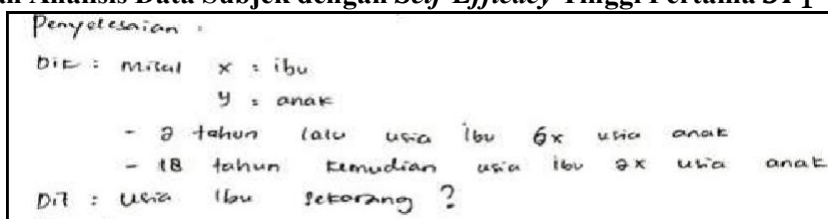 an Analisis Data Subjek dengan Self-Efficacy Tinggi Pertama ST 1
Penyelesaian :
Dit : misal x : ibu
y : anak
- 2 tahun lalu usia ibu 6x usia anak
- 18 tahun kemudian usia ibu 2x usia anak
Dit : usia ibu sekarang ?